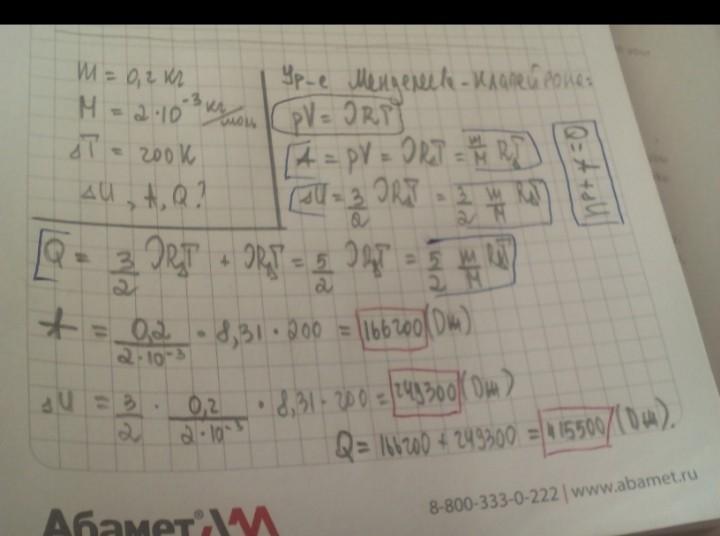 m = 0,2 кг
M = 2·10⁻³ кг/моль
ΔT = 200K
ΔU, A, Q?
Ур-е Менделеева-Клапейрона:
pV = νRT
A = pV = νRΔT = m/M RΔT
ΔU = 3/2 νRΔT = 3/2 m/M RΔT
Q = A + ΔU
Q = 3/2 νRΔT + νRΔT = 5/2 νRΔT = 5/2 m/M RΔT
A = 0,2/2·10⁻³ · 8,31 · 200 = 166200 (Дж)
ΔU = 3/2 · 0,2/2·10⁻³ · 8,31 · 200 = 249300 (Дж)
Q = 166200 + 249300 = 415500 (Дж).
8-800-333-0-222 | www.abamet.ru
Абамет®